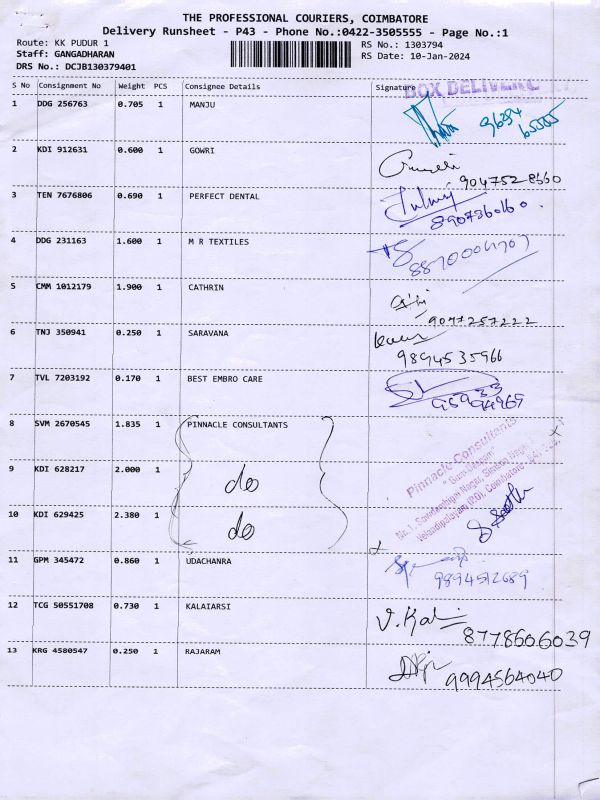 THE PROFESSIONAL COURIERS, COIMBATORE
Delivery Runsheet - P43 - Phone No.:0422-3505555 - Page No.:1
Route: KK PUDUR 1
RS No.: 1303794
Staff: GANGADHARAN
RS Date: 10-Jan-2024
DRS No.: DCJB130379401
S No Consignment No Weight PCS Consignee Details Signature
BOX DELIVERY
1 DDG 256763 0.705 1 MANJU
2 KDI 912631 0.600 1 GOWRI
9047528660
3 TEN 7676806 0.690 1 PERFECT DENTAL
8907360160
4 DDG 231163 1.600 1 M R TEXTILES
5 CMM 1012179 1.900 1 CATHRIN
9047257222
6 TNJ 350941 0.250 1 SARAVANA
9894535966
7 TVL 7203192 0.170 1 BEST EMBRO CARE
8 SVM 2670545 1.835 1 PINNACLE CONSULTANTS
Pinnacle Consultants
9 KDI 628217 2.000 1 do
10 KDI 629425 2.380 1 do
11 GPM 345472 0.860 1 UDACHANRA
9894512689
12 TCG 50551708 0.730 1 KALAIARSI
V. Kal
8778606039
13 KRG 4580547 0.250 1 RAJARAM
9994564040